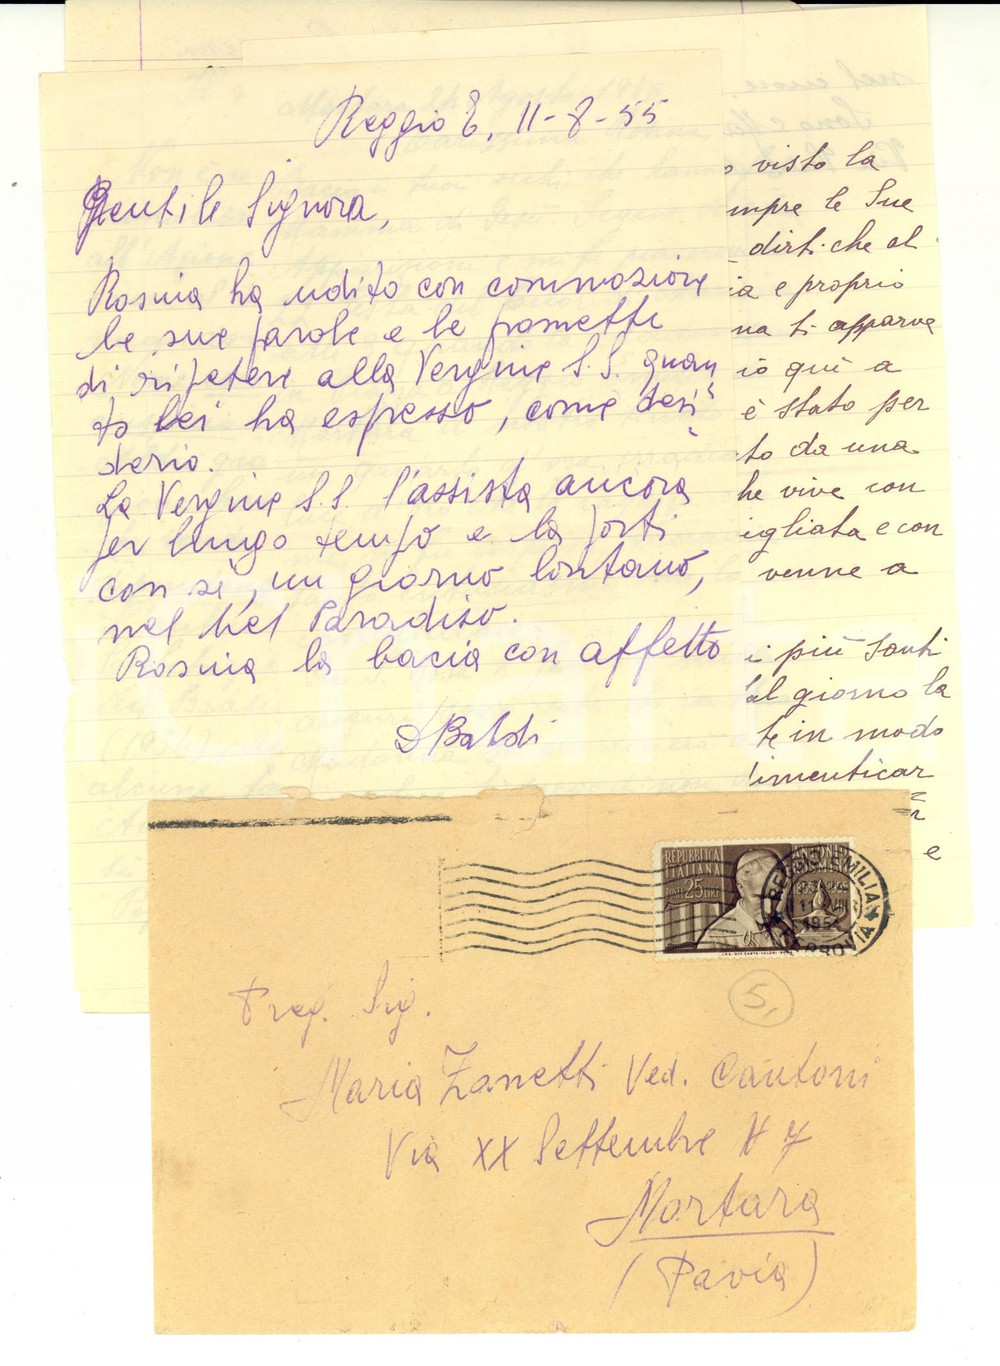 Reggio E, 11-8-55
Gentile Signora,
Rosina ha udito con commozione
le sue parole e le promette
di ripetere alla Vergine S.S. quan
to Lei ha espresso, come desi
derio.
La Vergine S.S. l'assista ancora
per lungo tempo e la porti
con sè, un giorno lontano,
nel bel Paradiso.
Rosina la bacia con affetto
D Baldi
o visto la
mpre le Sue
dirti che al
ia e proprio
na ti apparve
io quì a
è stato per
to da una
he vive con
igliata e con
venne a
i più santi
al giorno la
te in modo
imenticar
e
REPUBBLICA
ITALIANA
POSTE 25 LIRE
REGGIO EMILIA
FERROVIA
5,
Preg. Sig.
Maria Zanetti Ved. Cantoni
Via XX Settembre N 7
Mortara
(Pavia)